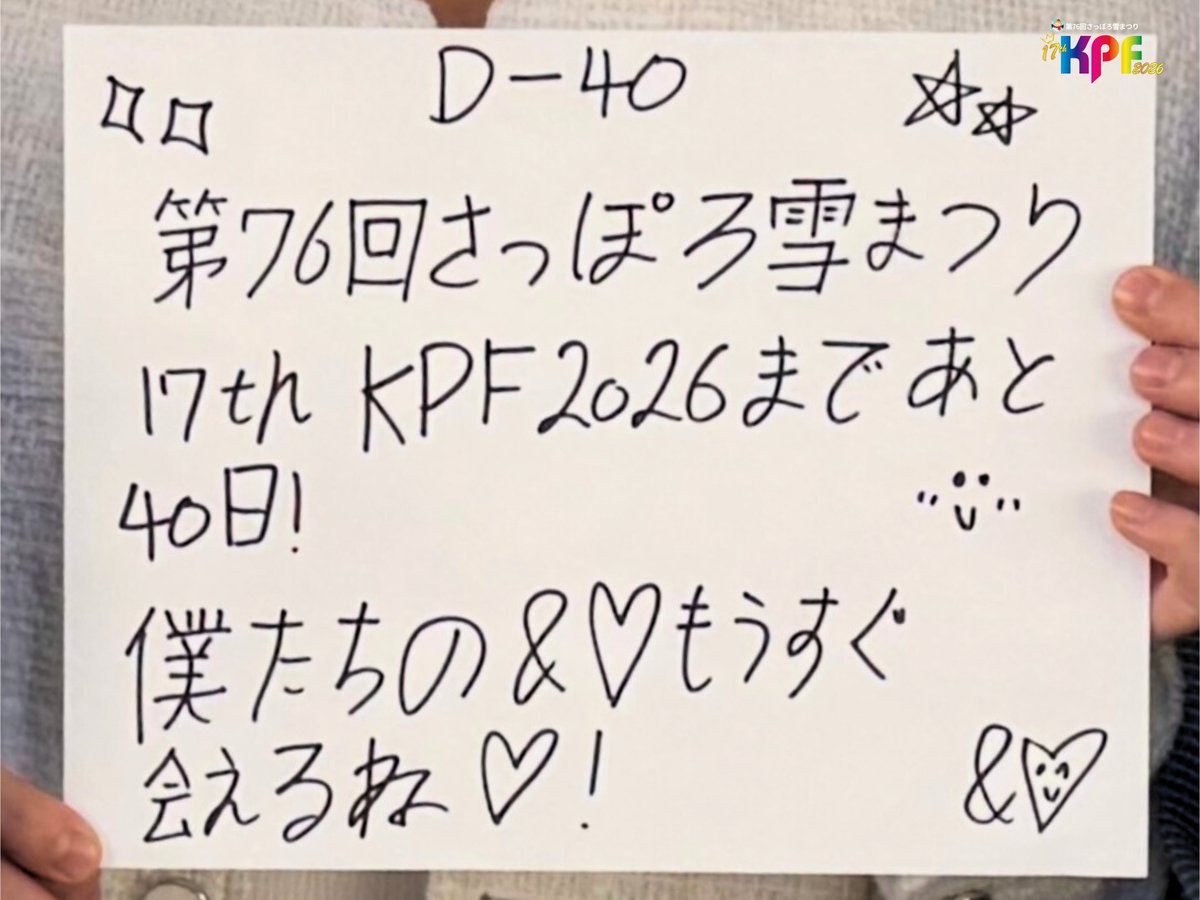 第76回さっぽろ雪まつり
17th KPF 2026
D-40
第76回さっぽろ雪まつり
17th KPF2026まであと
40日!
僕たちの&♡もうすぐ
会えるね♡!
&♡